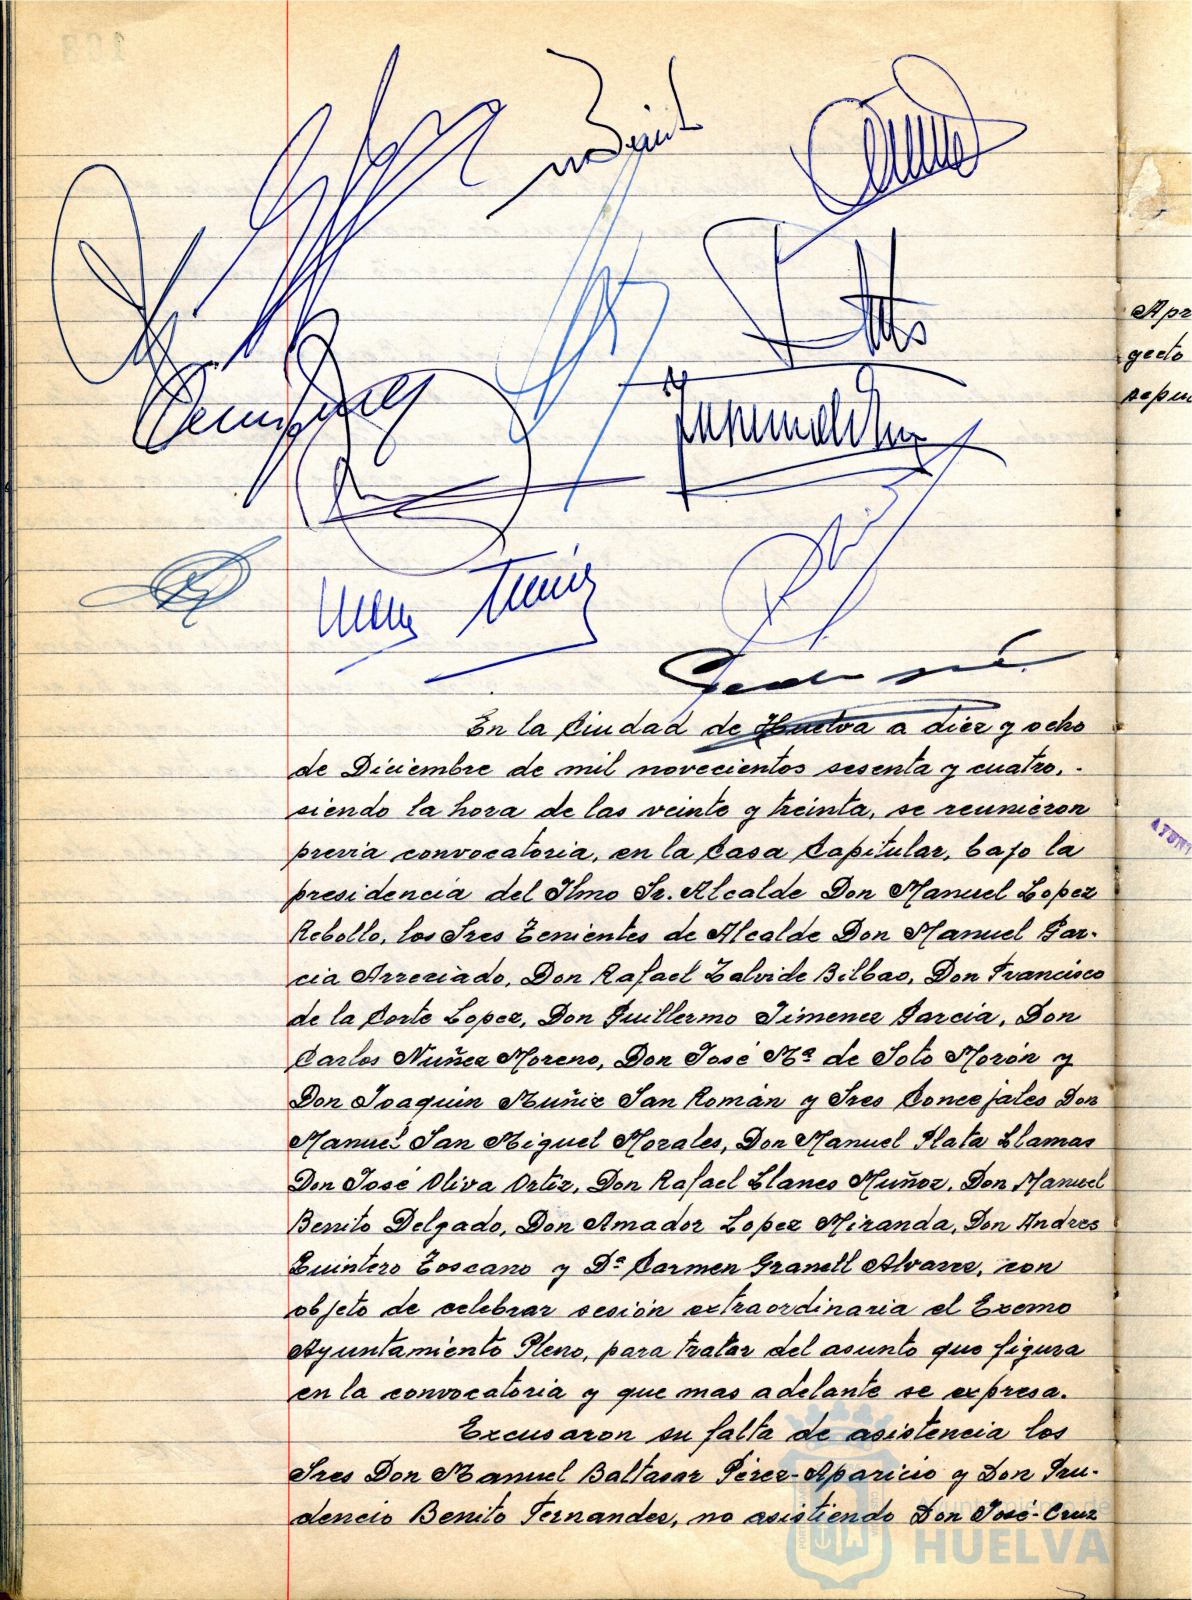 En la Ciudad de Huelva a diez y ocho
de Diciembre de mil novecientos sesenta y cuatro, -
siendo la hora de las veinte y treinta, se reunieron
previa convocatoria, en la Casa Capitular, bajo la
presidencia del Ilmo Sr. Alcalde Don Manuel Lopez
Rebollo, los Sres Tenientes de Alcalde Don Manuel Gar-
cia Arreciado, Don Rafael Zalvide Bilbao, Don Francisco
de la Corte Lopez, Don Guillermo Jimenez Garcia, Don
Carlos Nuñez Moreno, Don José Mª de Soto Morón y
Don Joaquin Muñiz San Román y Sres Concejales Don
Manuel San Miguel Morales, Don Manuel Plata Llamas
Don José Oliva Ortiz, Don Rafael Llanes Muñoz, Don Manuel
Benito Delgado, Don Amador Lopez Miranda, Don Andres
Quintero Toscano y Dª Carmen Granell Alvarez, con
objeto de celebrar sesión extraordinaria el Excmo
Ayuntamiento Pleno, para tratar del asunto que figura
en la convocatoria y que mas adelante se expresa.
Excusaron su falta de asistencia los
Sres Don Manuel Baltasar Pérez-Aparicio y Don Pru-
dencio Benito Fernandez, no asistiendo Don José-Cruz
Apr
gecto
sepu
Ayuntamiento de
HUELVA